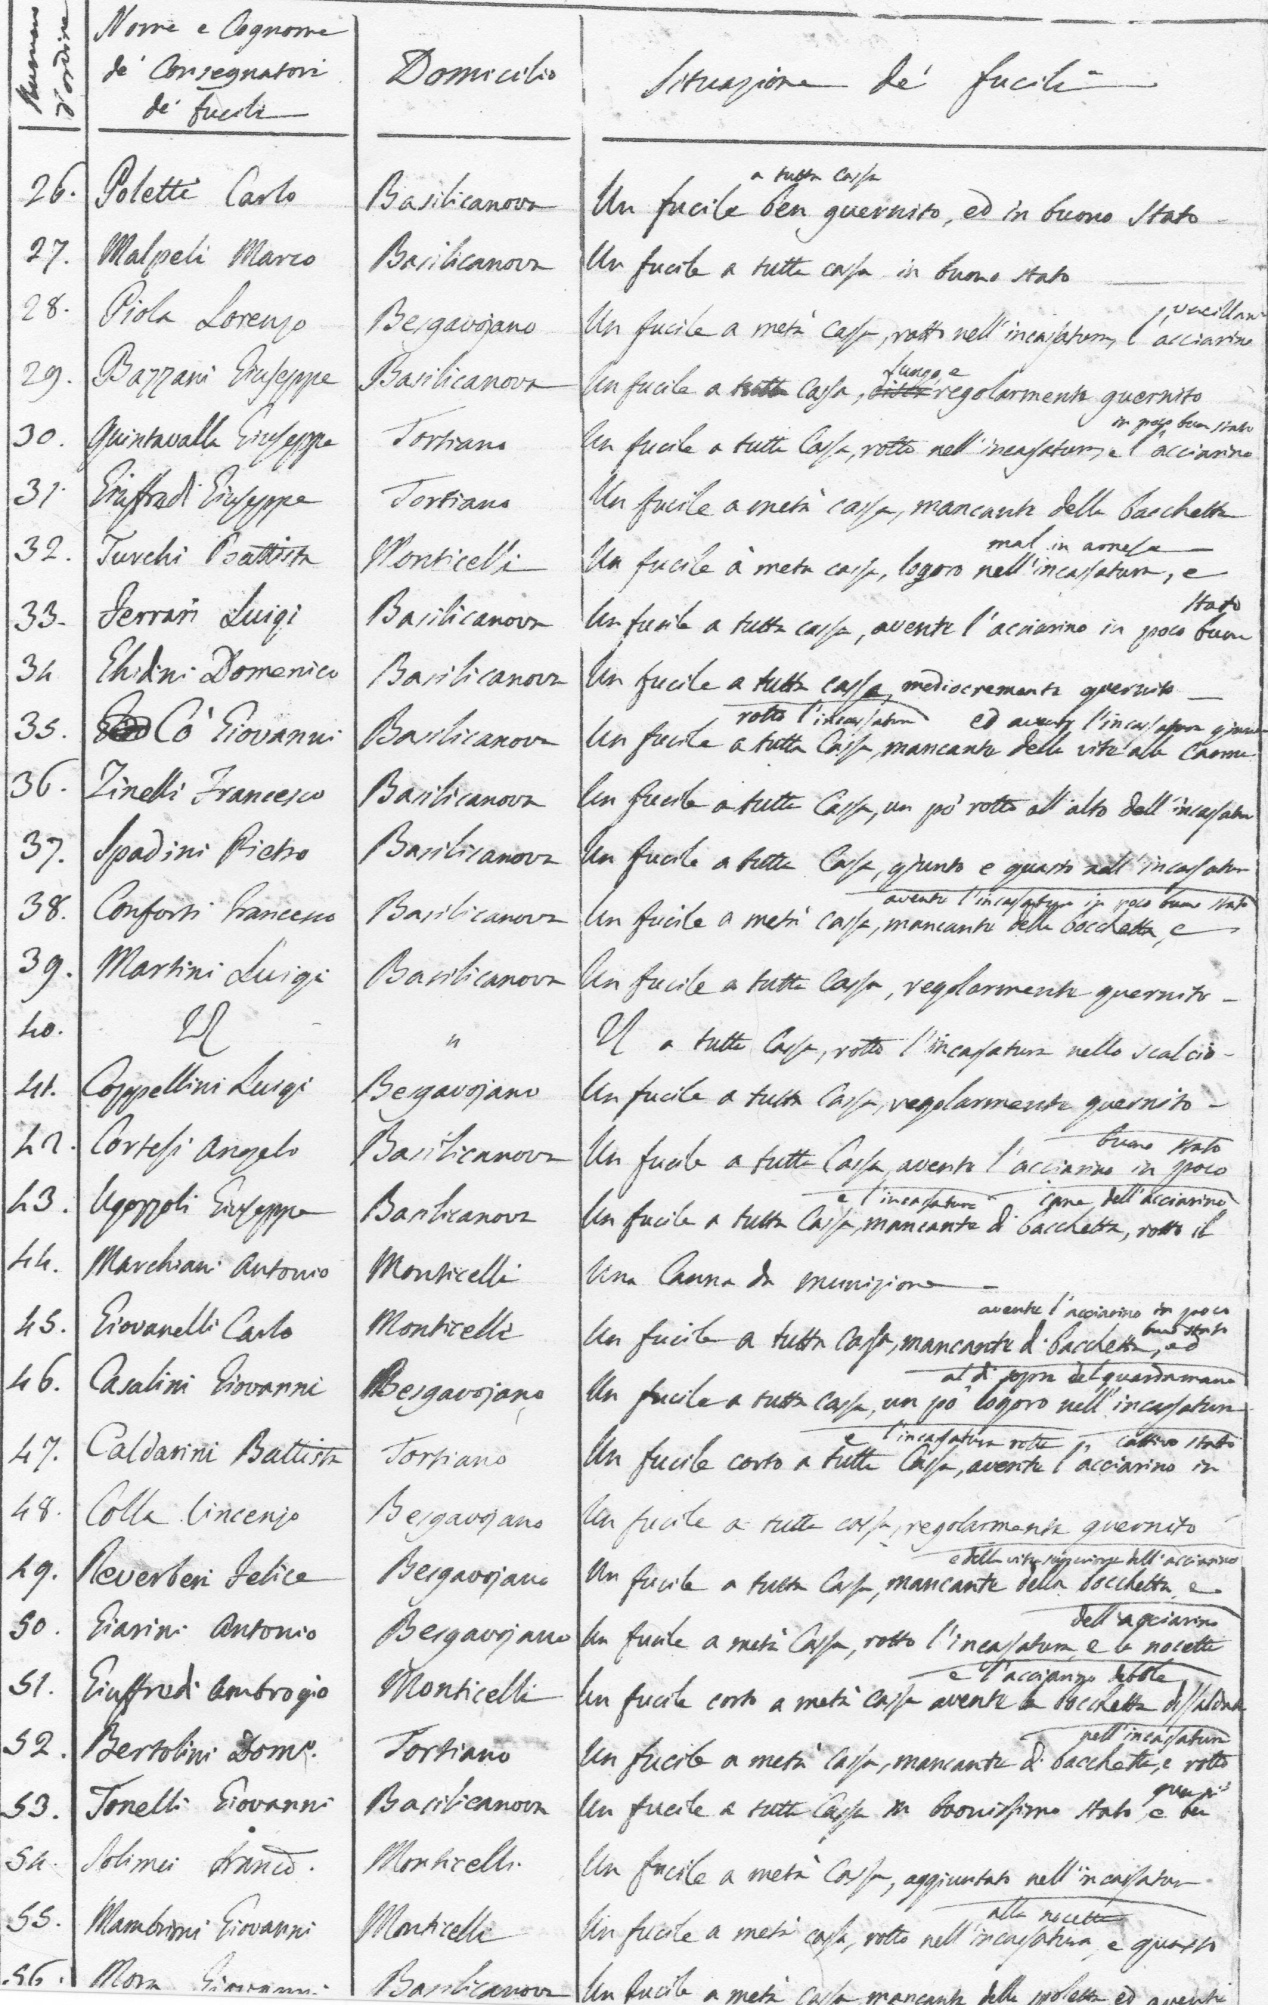 Numero d'ordine
Nome e Cognome
de' Consegnatori
de' fucili
Domicilio
Situazione de' fucili
26. Poletti Carlo Basilicanova Un fucile a tutta cassa ben guernito, ed in buono stato
27. Malpeli Marco Basilicanova Un fucile a tutta cassa in buono stato
28. Piola Lorenzo Bergavojano Un fucile a metà cassa, rotto nell'incassatura, l'acciarino vacillante
29. Bazzani Giuseppe Basilicanova Un fucile a tutta cassa, lungo e regolarmente guernito
30. Quintavalla Giuseppe Tortiano Un fucile a tutta Cassa, rotto nell'incassatura, e l'acciarino in poco buon stato
31. Giuffredi Giuseppe Tortiano Un fucile a metà cassa, mancante della bacchetta
32. Turchi Battista Monticelli Un fucile à metà cassa, logoro nell'incassatura, e mal in arnese
33. Ferrari Luigi Basilicanova Un fucile a tutta cassa, avente l'acciarino in poco buon stato
34. Ghidini Domenico Basilicanova Un fucile a tutta cassa mediocremente guernito
35. Cò Giovanni Basilicanova Un fucile a tutta Cassa, mancante della vite alla Canna ed avente l'incassatura
rotto l'incassatura
36. Zinelli Francesco Basilicanova Un fucile a tutta Cassa, un pò rotto all'alto dell'incassatura
37. Spadini Pietro Basilicanova Un fucile a tutta Cassa, giunto e guasto nell'incassatura
38. Conforti Francesco Basilicanova Un fucile a metà cassa, mancante della bacchetta, e avente l'incassatura in poco buono stato
39. Martini Luigi Basilicanova Un fucile a tutta Cassa, regolarmente guernito
40. Id. " Id. a tutta Cassa, rotto l'incassatura nello scalcio
41. Coppellini Luigi Bergavojano Un fucile a tutta Cassa, regolarmente guernito
42. Cortesi Angelo Basilicanova Un fucile a tutta Cassa, avente l'acciarino in poco buono stato
43. Ugozzoli Giuseppe Basilicanova Un fucile a tutta Cassa, mancante di bacchetta, rotto il cane dell'acciarino e l'incassatura
44. Marchiani Antonio Monticelli Una Canna da munizione
45. Giovanelli Carlo Monticelli Un fucile a tutta Cassa, mancante di bacchetta, ed avente l'acciarino in poco buono stato
46. Casalini Giovanni Bergavojano Un fucile a tutta cassa, un pò logoro nell'incassatura al di sopra del guardamano
47. Caldarini Battista Tortiano Un fucile corto a tutta Cassa, avente l'acciarino in cattivo stato e l'incassatura rotta
48. Colla Vincenzo Bergavojano Un fucile a tutta cassa, regolarmente guernito
49. Reverberi Felice Bergavojano Un fucile a tutta Cassa, mancante della bacchetta e della vite superiore dell'acciarino
50. Giarini Antonio Bergavojano Un fucile a metà Cassa, rotto l'incassatura e la nocetta dell'acciarino
51. Giuffredi Ambrogio Monticelli Un fucile corto a metà cassa avente la bacchetta dissaldata e l'acciarino debole
52. Bertolini Domco. Tortiano Un fucile a metà Cassa, mancante di bacchetta, e rotto nell'incassatura
53. Tonelli Giovanni Basilicanova Un fucile a tutta Cassa in buonissimo stato, e ben guernito
54. Solimei Franco. Monticelli Un fucile a metà Cassa, aggiuntato nell'incassatura
55. Mambrini Giovanni Monticelli Un fucile a metà cassa, rotto nell'incassatura, e guasto alla nocetta
56. Mora Giovanni Basilicanova Un fucile a metà Cassa mancante della ed avente